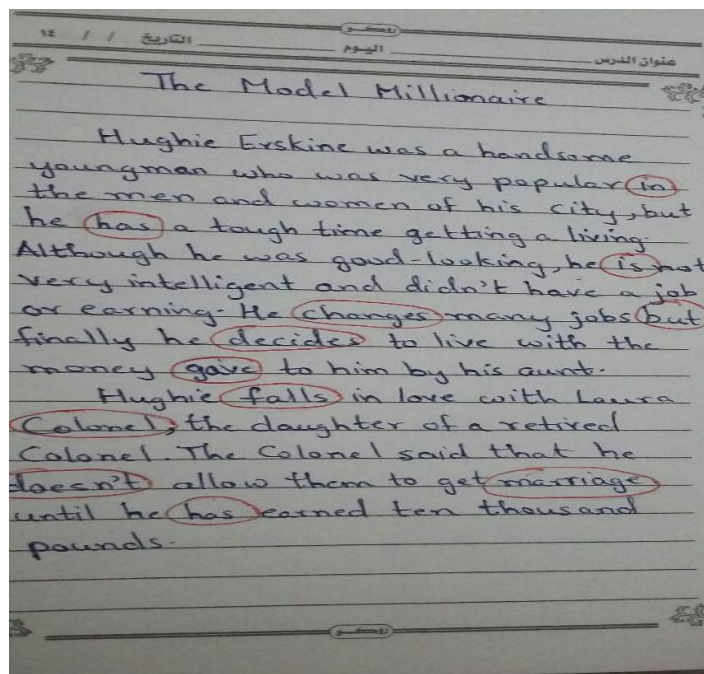 روكو
عنوان الدرس اليوم التاريخ / / ١٤
The Model Millionaire
Hughie Erskine was a handsome
youngman who was very popular in
the men and women of his city, but
he has a tough time getting a living.
Although he was good-looking, he is not
very intelligent and didn't have a job
or earning. He changes many jobs but
finally he decides to live with the
money gave to him by his aunt.
Hughie falls in love with Laura
Colonel, the daughter of a retired
Colonel. The Colonel said that he
doesn't allow them to get marriage
until he has earned ten thousand
pounds.
روكو